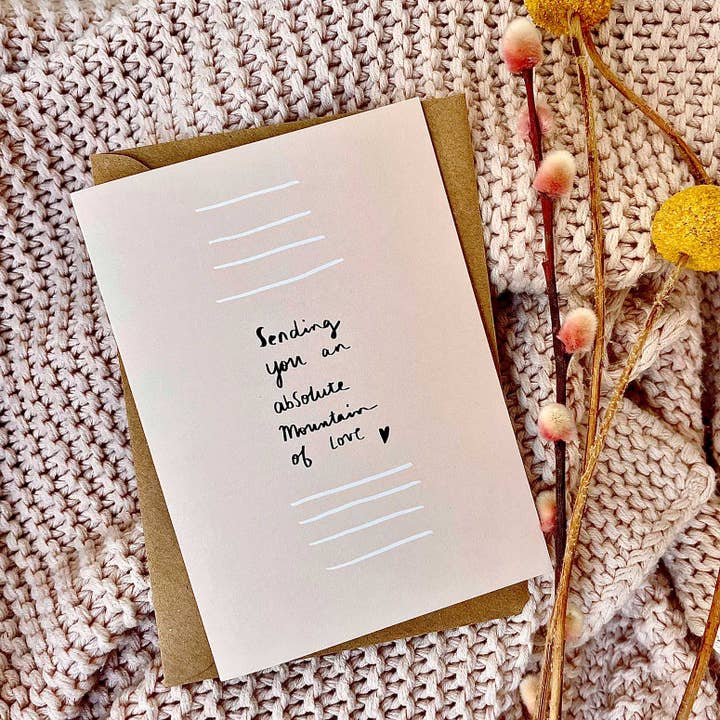 Sending
you an
absolute
Mountain
of love ♥